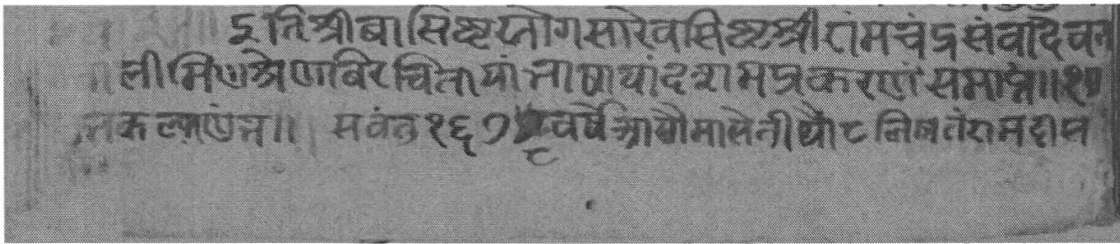 इतिश्रीबासिष्टय्तोगसारेवसिष्टश्रीरांमचंद्रसंवादेवन
लीमिणश्रेणविरचितायांनाषायांदशमप्रकरणंसमाप्तं॥१०
कल्याणंन्न॥ सवंत१६७ वर्षेआसौमासेतीथौ८लिषतंरामदास